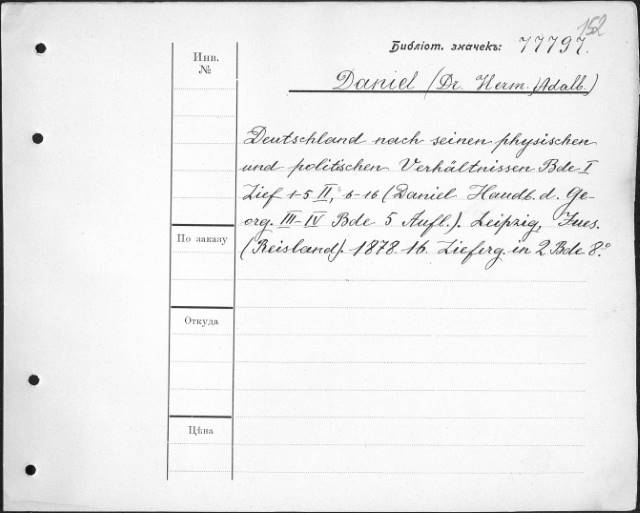 152
Библіот. значекъ: 77797.
Инв.
№
Daniel (Dr. Herm. Adalb.)
Deutschland nach seinen physischen
und politischen Verhältnissen Bde I
Lief 1-5 II, 6-16 (Daniel Handb. d. Ge-
org. III-IV Bde 5 Aufl.). Leipzig, Fues.
(Reisland). 1878. 16. Lieferg. in 2 Bde 8.°
По заказу
Откуда
Цѣна